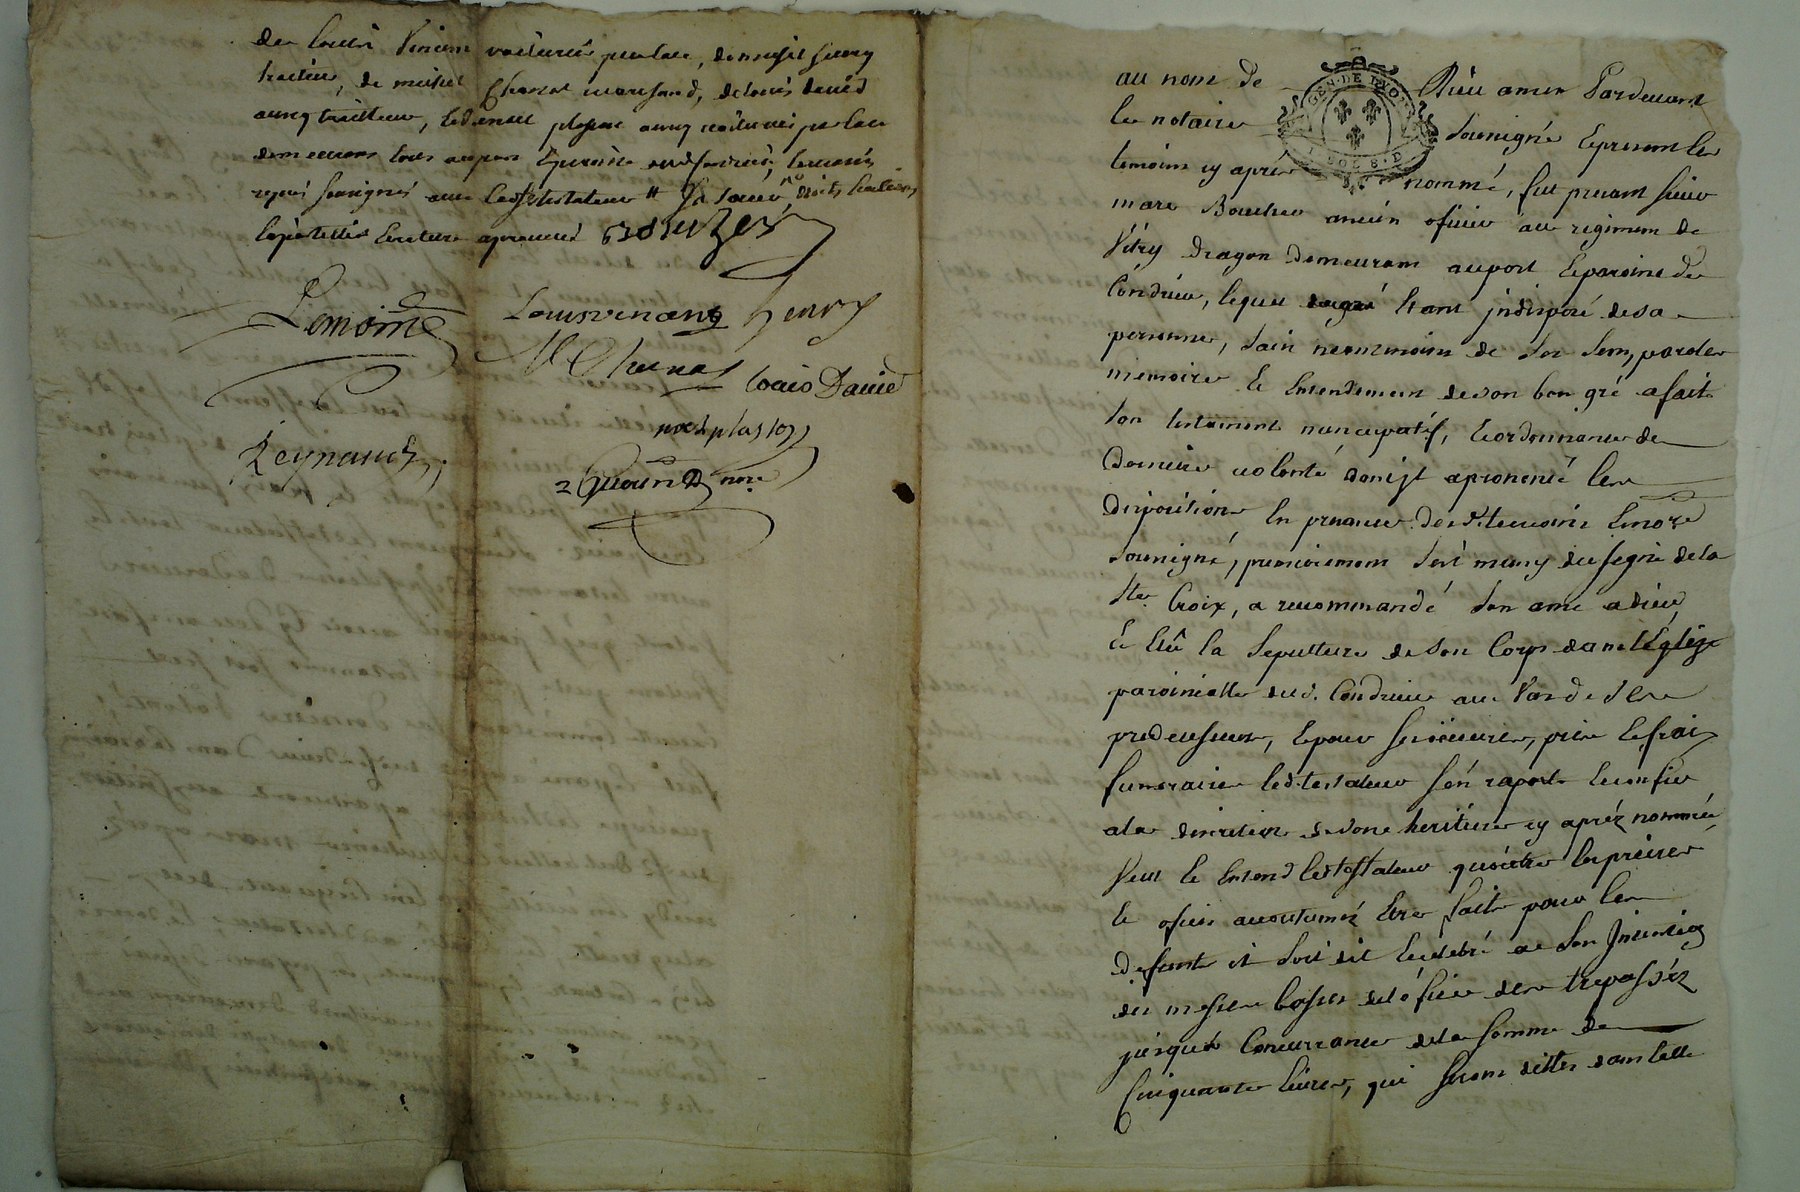 de louis Vincent voiturier par eau, de
traiteur, de michel Charnas marchand, de louis david
aussy traiteur, plasson aussy voiturier par eau
demeurans tous au port & paroisse dud. Condrieu, temoins
requis soussignés avec led. sr testateur
Bouzer
Lemoine
Louis vincent henry
M Charnas louis David
noel plasson
Reynaud
au nom de Dieu amen Pardevant
le notaire soussigné & presents les
temoins cy aprés nommé, fut present sieur
marc Boucher ancien oficier au regiment de
Vitry dragon demeurant au port & paroisse de
Condrieu, lequel étant jndisposé de sa
personne, sain neanmoins de ses sens, parole
memoire & entendement de son bon gré a fait
son testament nuncupatif, & ordonnance de
derniere volonté dont jl a prononcé les
dispositions en presence des ds. temoins & no.re
soussigné, premierement s'est muny du signe de la
Ste. Croix, a recommandé son ame a dieu
& elû la sepulture de son Corps dans l'Église
paroissialle dud. Condrieu au Vas de ses
predecesseurs, & pour ses oeuvres pies & frais
funeraires led. testateur s'en raporte & confie
a la discretion de son heritiere cy aprés nommée
Veut & entend led. testateur qu'outre les prieres
& ofices accoutumez etre faits pour les
defunts il soit dit & celebré a son jntention
des messes basses de l'ofice des trepassez
jusqu'a Concurrance de la somme de
Cinquante livres, qui seront dittes dans telle
GEN. DE LYON